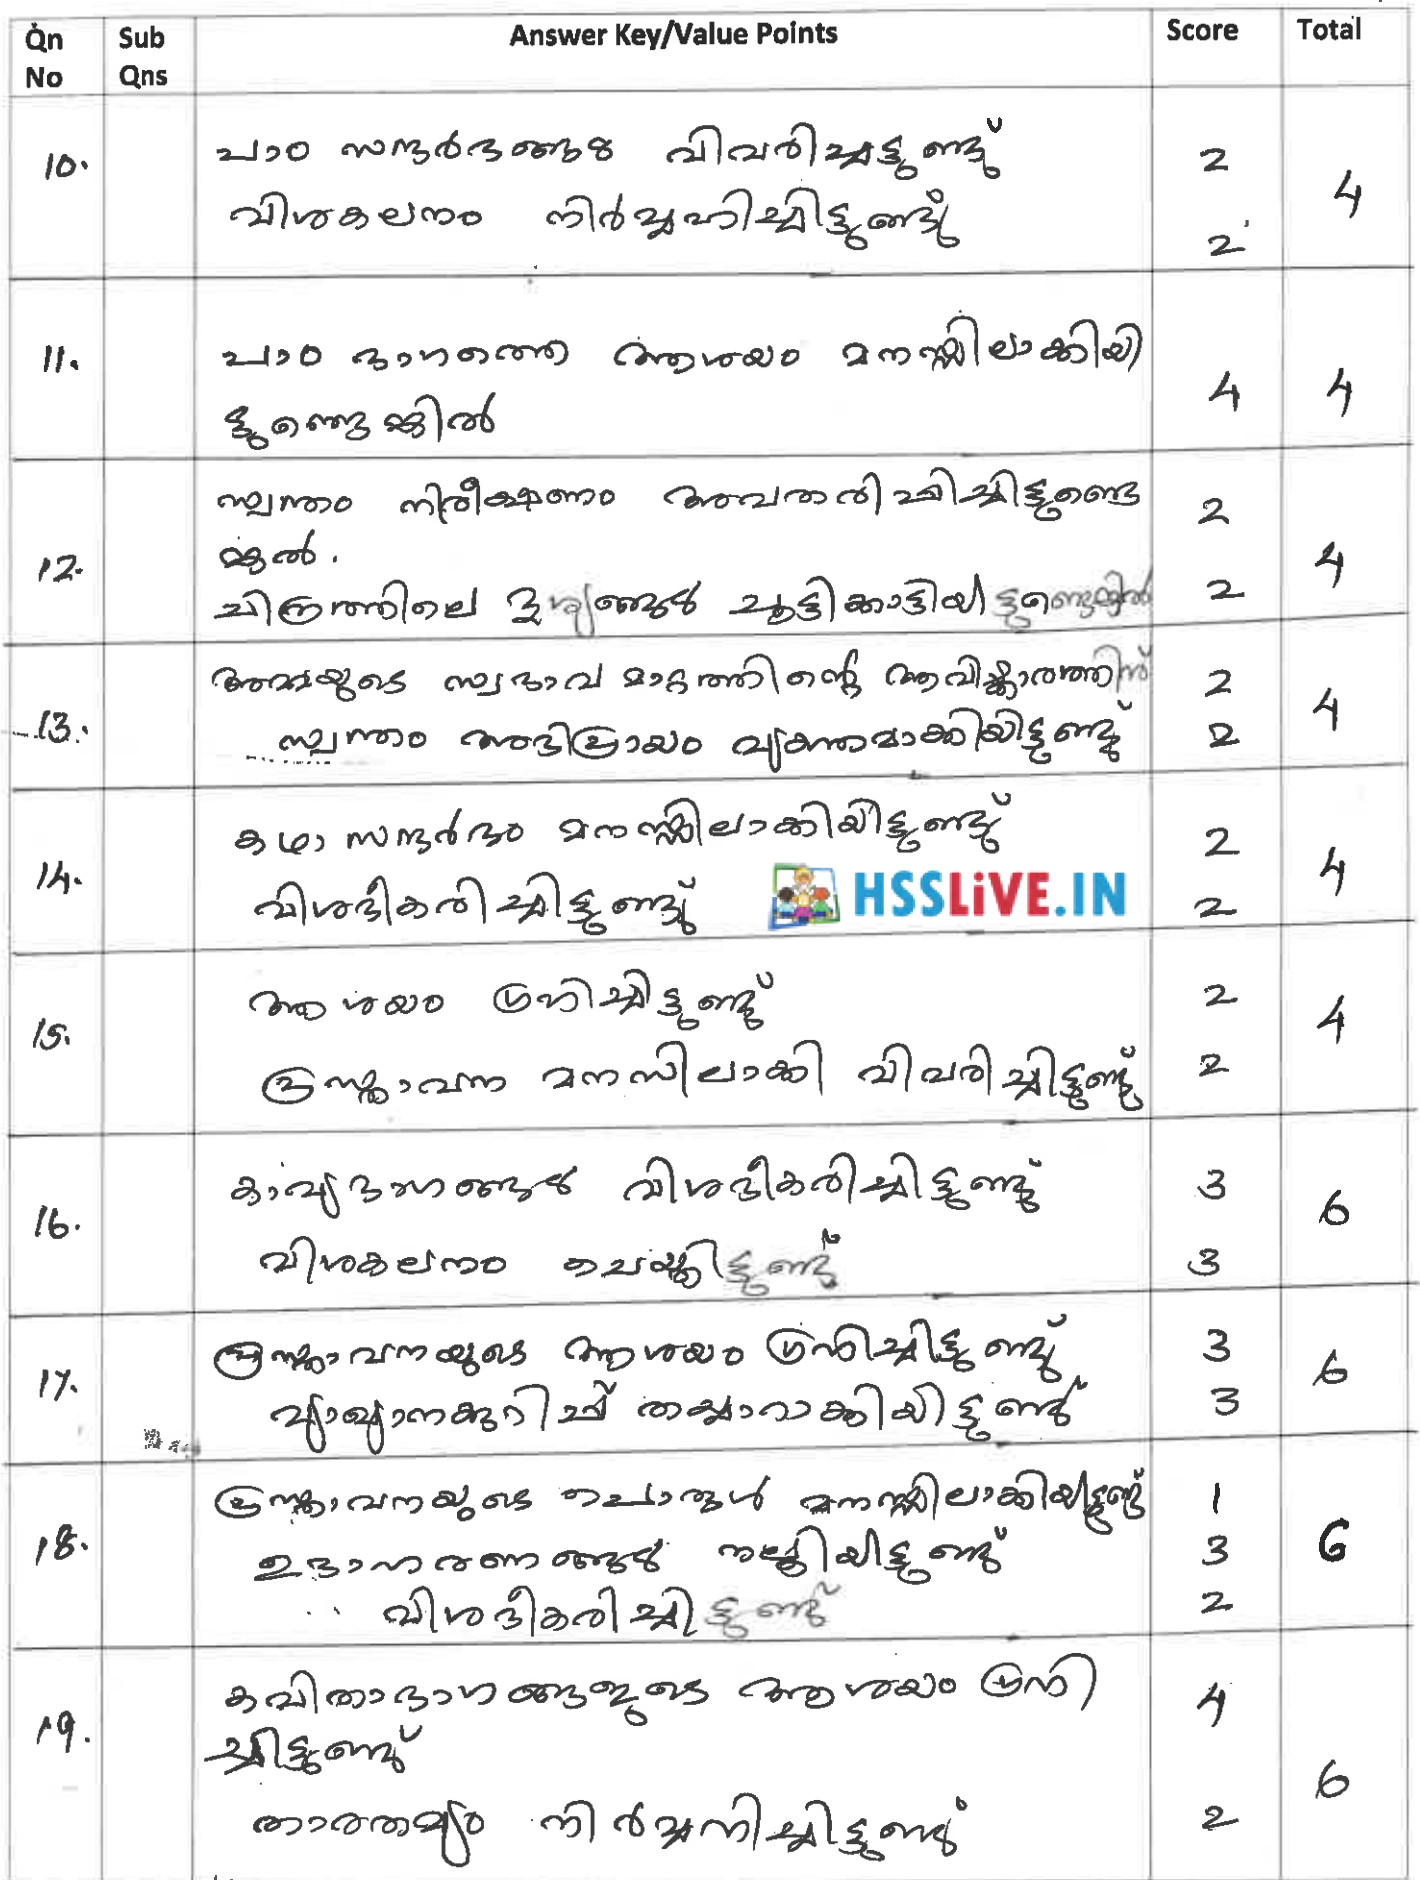 Qn No Sub Qns Answer Key/Value Points Score Total
10. പാഠ സന്ദർഭങ്ങൾ വിവരിച്ചട്ടുണ്ട് 2 4
വിശകലനം നിർവ്വഹിച്ചിട്ടുണ്ട് 2
11. പാഠ ഭാഗത്തെ ആശയം മനസ്സിലാക്കിയി
ട്ടുണ്ടെങ്കിൽ 4 4
12. സ്വന്തം നിരീക്ഷണം അവതരിപ്പിച്ചിട്ടുണ്ടെ 2 4
ങ്കിൽ.
ചിത്രത്തിലെ ദൃശ്യങ്ങൾ ചൂട്ടിക്കാട്ടിയിട്ടുണ്ടെങ്കിൽ 2
13. അമ്മയുടെ സ്വഭാവ മാറ്റത്തിന്റെ ആവിഷ്കാരത്തിന് 2 4
സ്വന്തം അഭിപ്രായം വ്യക്തമാക്കിയിട്ടുണ്ട് 2
14. കഥാ സന്ദർഭം മനസ്സിലാക്കിയിട്ടുണ്ട് 2 4
വിശദീകരിച്ചിട്ടുണ്ട് HSSLiVE.IN 2
15. ആശയം ഗ്രഹിച്ചിട്ടുണ്ട് 2 4
പ്രസ്താവന മനസിലാക്കി വിവരിച്ചിട്ടുണ്ട് 2
16. കാവ്യഭാഗങ്ങൾ വിശദീകരിച്ചിട്ടുണ്ട് 3 6
വിശകലനം ചെയ്തിട്ടുണ്ട് 3
17. പ്രസ്താവനയുടെ ആശയം ഗ്രഹിച്ചിട്ടുണ്ട് 3 6
വ്യാഖ്യാനക്കുറിപ്പ് തയ്യാറാക്കിയിട്ടുണ്ട് 3
18. പ്രസ്താവനയുടെ പൊരുൾ മനസ്സിലാക്കിയിട്ടുണ്ട് 1 6
ഉദാഹരണങ്ങൾ നല്കിയിട്ടുണ്ട് 3
വിശദീകരിച്ചിട്ടുണ്ട് 2
19. കവിതാഭാഗങ്ങളുടെ ആശയം ഗ്രഹി 4 6
ച്ചിട്ടുണ്ട്
താരതമ്യം നിർവ്വഹിച്ചിട്ടുണ്ട് 2